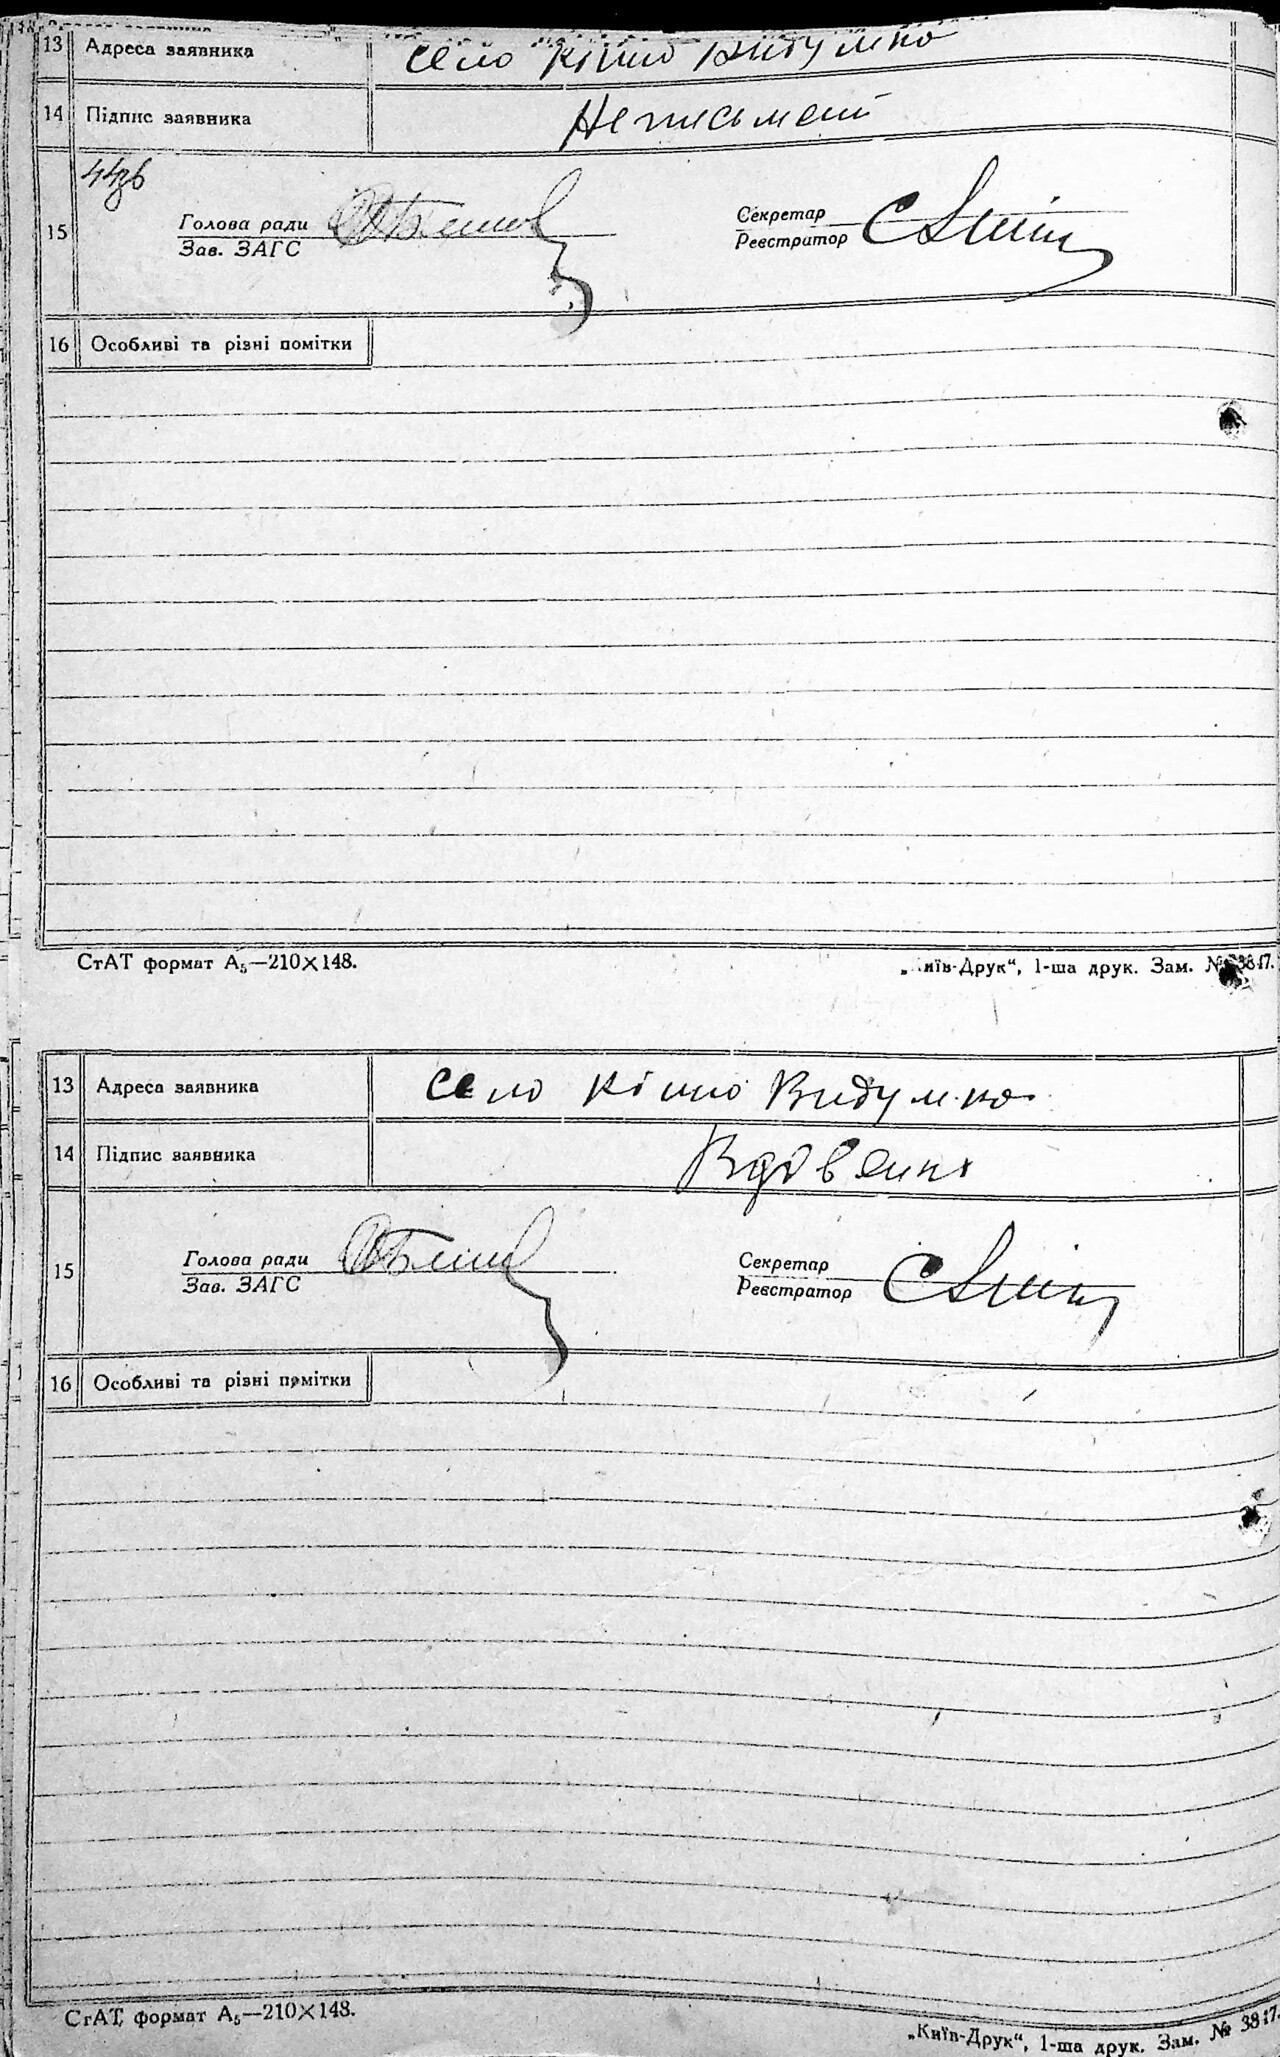 13 Адреса заявника село Кішно Видумко
14 Підпис заявника Неписьмений
15 Голова ради
Зав. ЗАГС
Секретар
Реєстратор
16 Особливі та різні помітки
СтАТ формат А₅—210×148.
„Київ-Друк“, 1-ша друк. Зам. № 3847.
13 Адреса заявника село Кішно Видумко
14 Підпис заявника Вдовенко
15 Голова ради
Зав. ЗАГС
Секретар
Реєстратор
16 Особливі та різні помітки
СтАТ формат А₅—210×148.
„Київ-Друк“, 1-ша друк. Зам. № 3847.